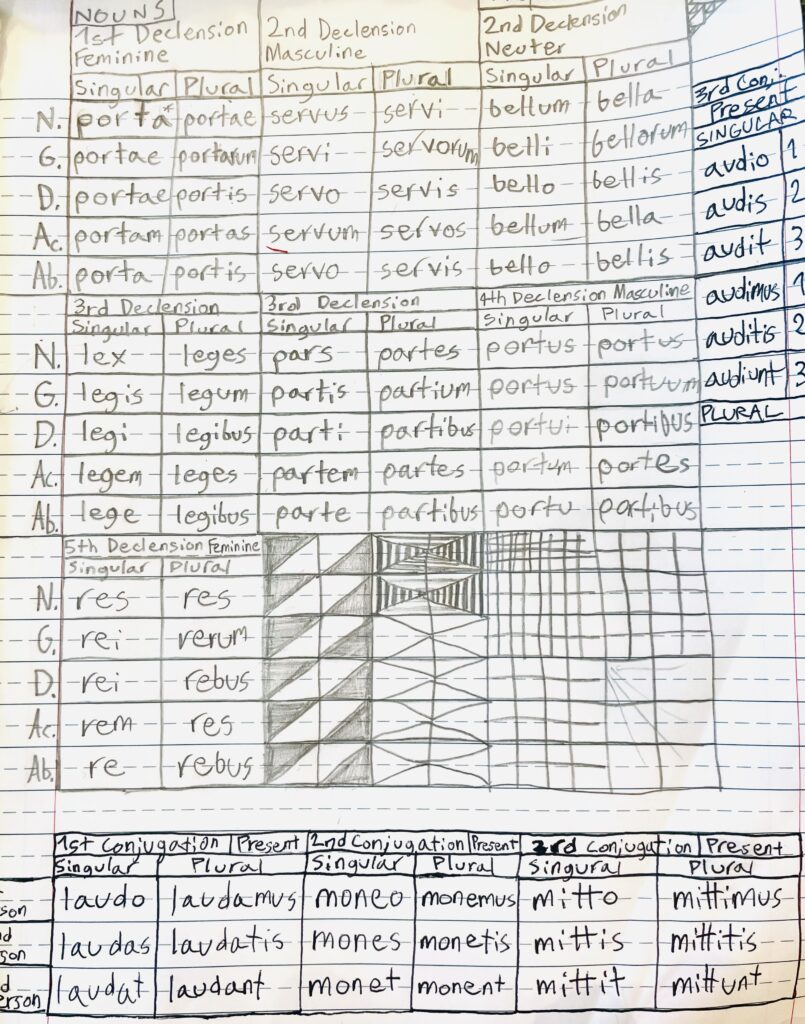 NOUNS
1st Declension Feminine 2nd Declension Masculine 2nd Declension Neuter
Singular Plural Singular Plural Singular Plural
N. porta* portae servus servi bellum bella
G. portae portarum servi servorum belli bellorum
D. portae portis servo servis bello bellis
Ac. portam portas servum servos bellum bella
Ab. porta portis servo servis bello bellis
3rd Declension 3rd Declension 4th Declension Masculine
Singular Plural Singular Plural Singular Plural
N. lex leges pars partes portus portus
G. legis legum partis partium portus portuum
D. legi legibus parti partibus portui portibus
Ac. legem leges partem partes portum portes
Ab. lege legibus parte partibus portu portibus
5th Declension Feminine
Singular Plural
N. res res
G. rei rerum
D. rei rebus
Ac. rem res
Ab. re rebus
3rd Conj.
Present
SINGULAR
audio 1
audis 2
audit 3
audimus 1
auditis 2
audiunt 3
PLURAL
1st Conjugation Present 2nd Conjugation Present 3rd Conjugation Present
Singular Plural Singular Plural Singural Plural
son laudo laudamus moneo monemus mitto mittimus
d son laudas laudatis mones monetis mittis mittitis
d erson laudat laudant monet monent mittit mittunt